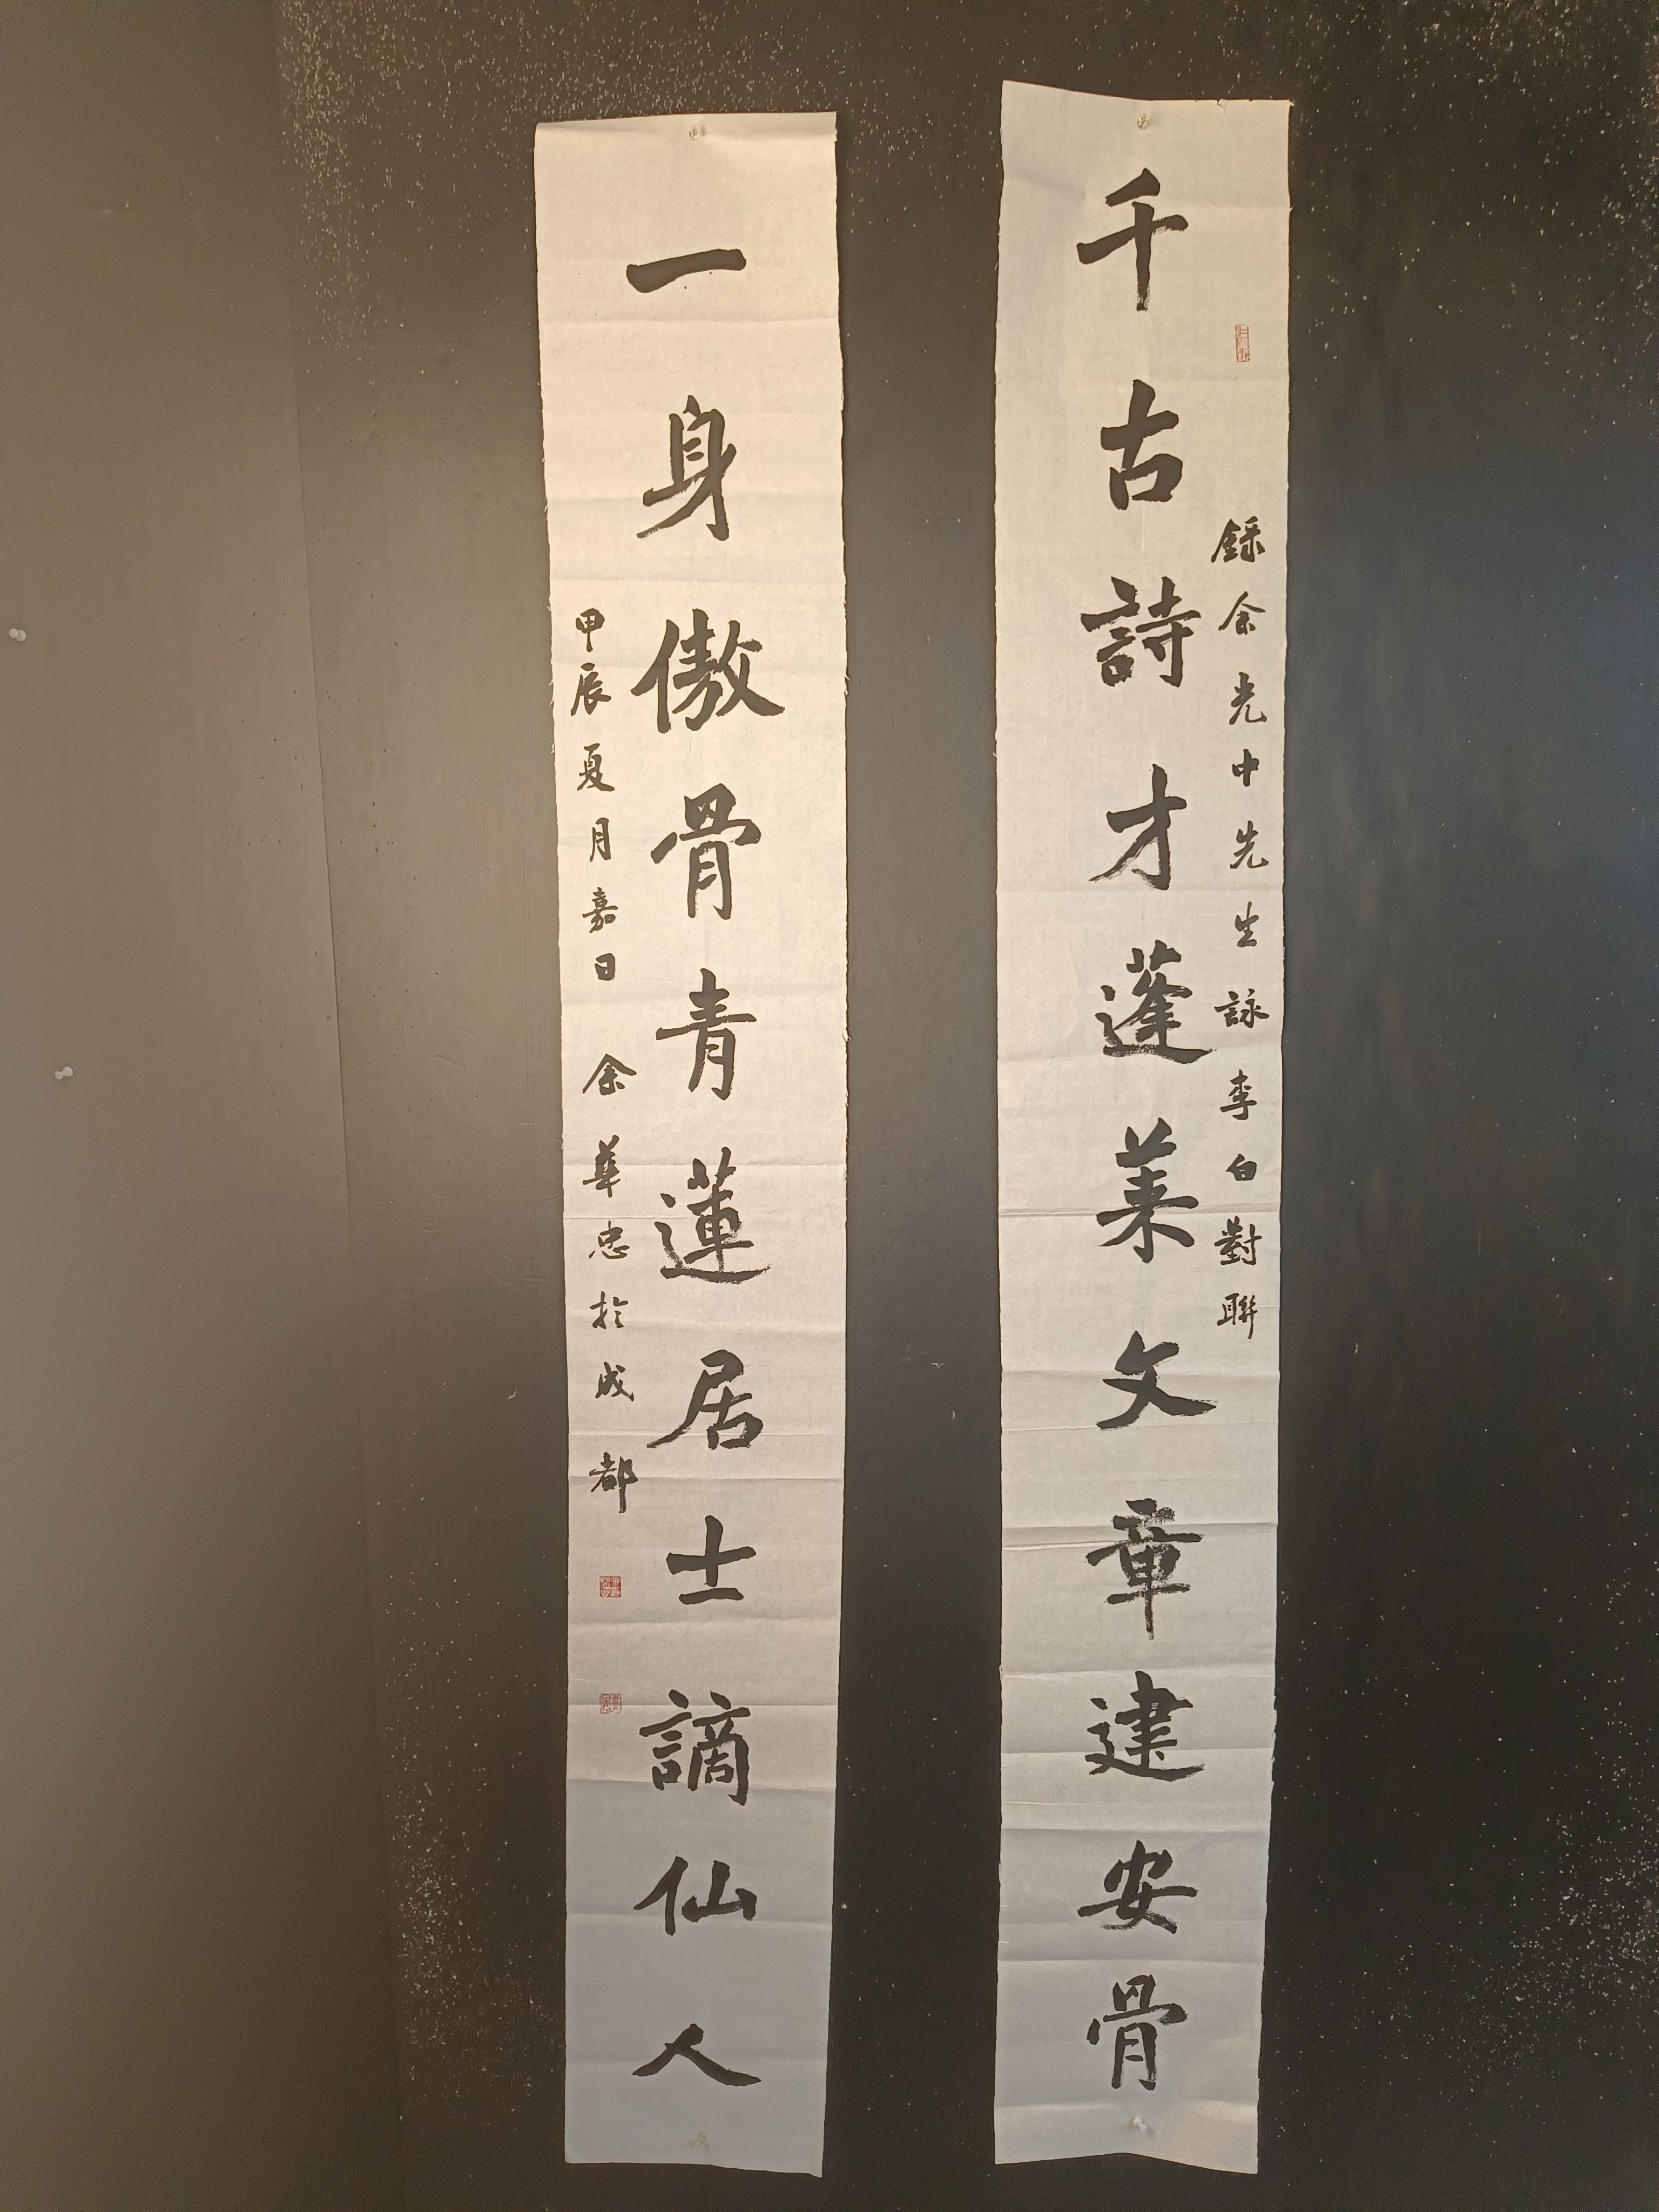 千古詩才蓬莱文章建安骨
錄余光中先生詠李白對聯
一身傲骨青蓮居士謫仙人
甲辰夏月嘉日 余華忠於成都